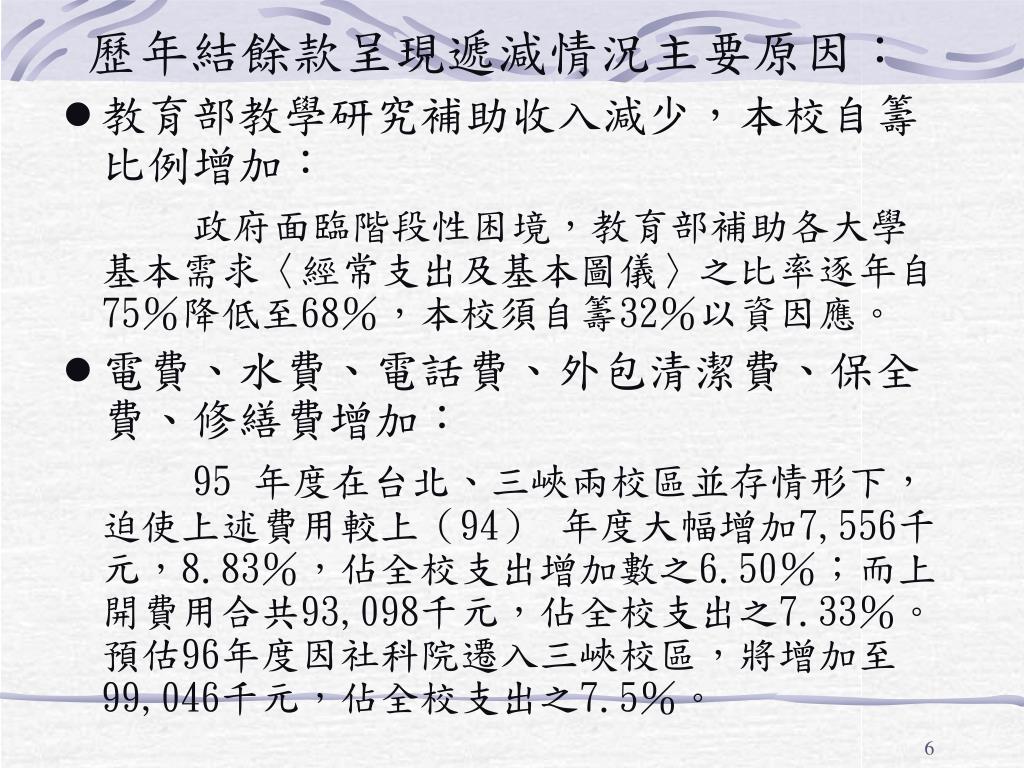 歷年結餘款呈現遞減情況主要原因：
●教育部教學研究補助收入減少，本校自籌
比例增加：
政府面臨階段性困境，教育部補助各大學
基本需求〈經常支出及基本圖儀〉之比率逐年自
75%降低至68%，本校須自籌32%以資因應。
●電費、水費、電話費、外包清潔費、保全
費、修繕費增加：
95 年度在台北、三峽兩校區並存情形下，
迫使上述費用較上（94） 年度大幅增加7,556千
元，8.83%，佔全校支出增加數之6.50%；而上
開費用合共93,098千元，佔全校支出之7.33%。
預估96年度因社科院遷入三峽校區，將增加至
99,046千元，佔全校支出之7.5%。
6